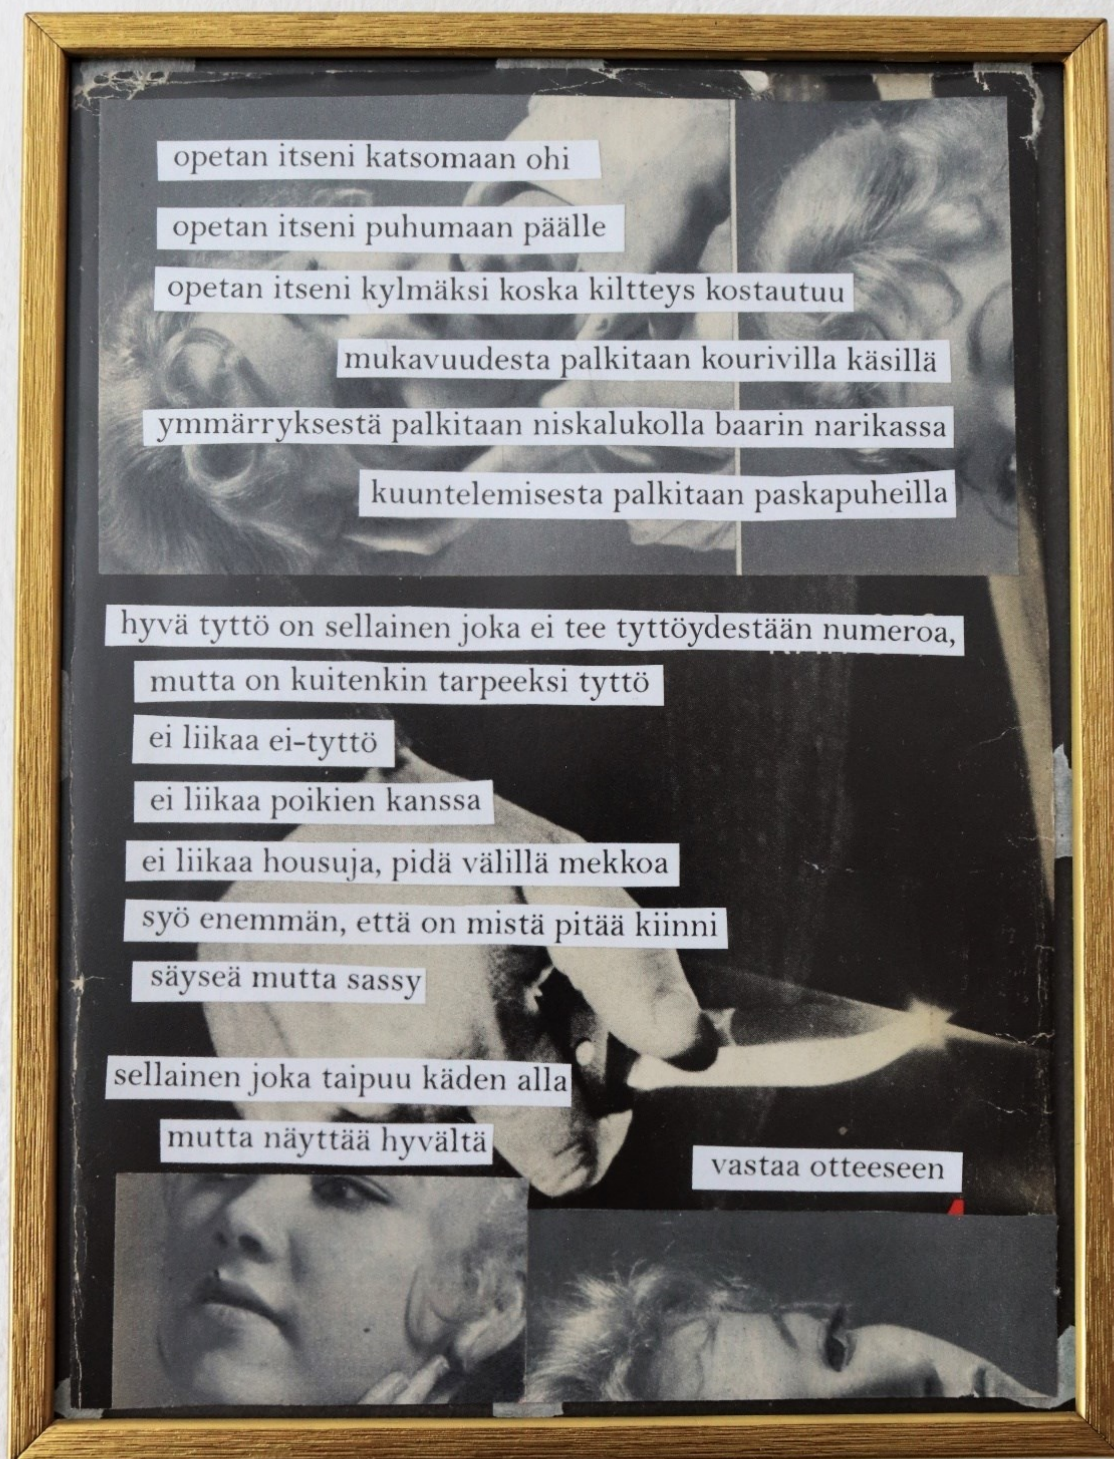 opetan itseni katsomaan ohi
opetan itseni puhumaan päälle
opetan itseni kylmäksi koska kiltteys kostautuu
mukavuudesta palkitaan kourivilla käsillä
ymmärryksestä palkitaan niskalukolla baarin narikassa
kuuntelemisesta palkitaan paskapuheilla
hyvä tyttö on sellainen joka ei tee tyttöydestään numeroa,
mutta on kuitenkin tarpeeksi tyttö
ei liikaa ei-tyttö
ei liikaa poikien kanssa
ei liikaa housuja, pidä välillä mekkoa
syö enemmän, että on mistä pitää kiinni
säyseä mutta sassy
sellainen joka taipuu käden alla
mutta näyttää hyvältä
vastaa otteeseen